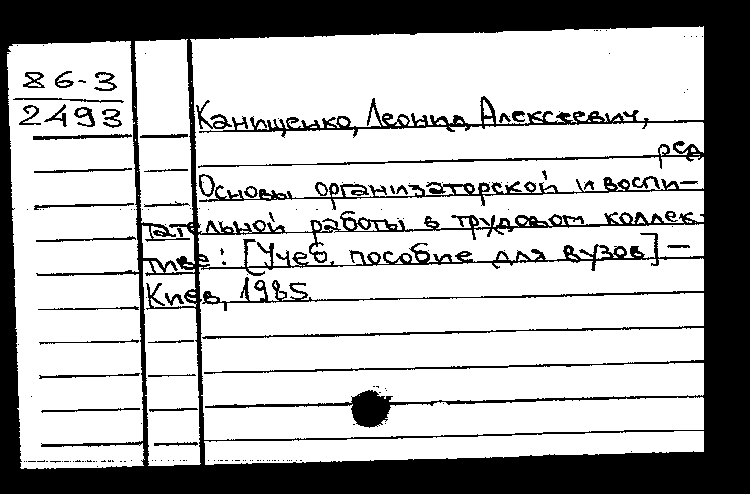 86-3
2493
Канищенко, Леонид Алексеевич,
ред
Основы организаторской и воспи-
тательной работы в трудовом коллек-
тиве: [Учеб. пособие для вузов] —
Киев, 1985